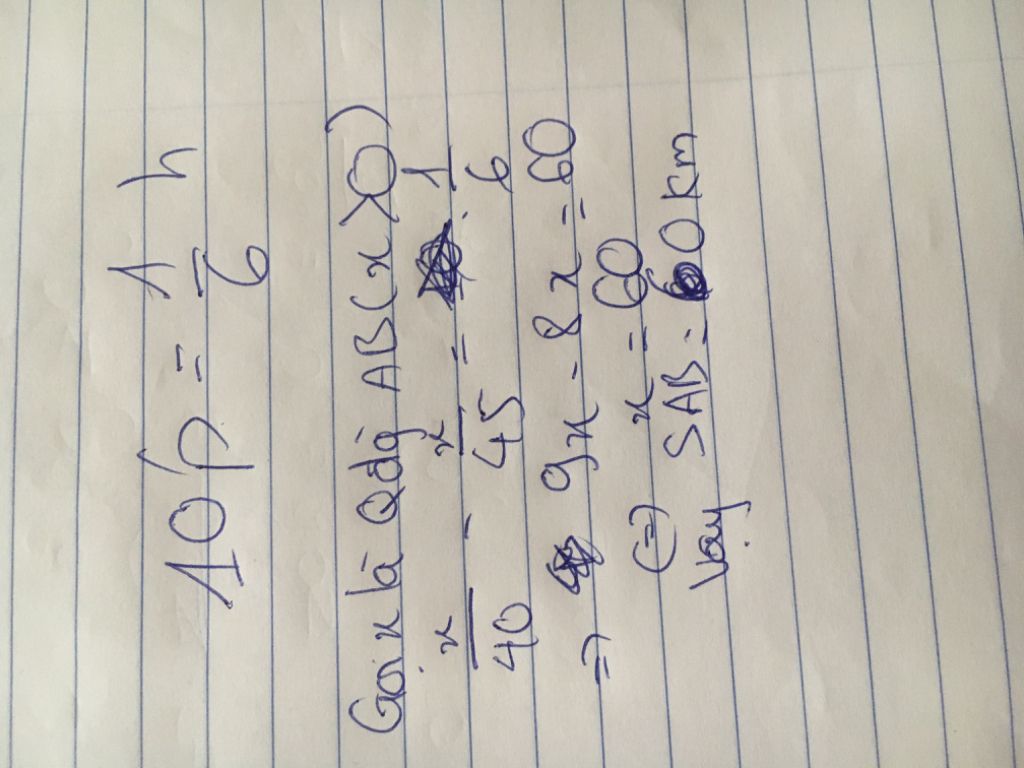 10p = 1/6 h
Gọi x là Qđg AB (x > 0)
x/40 - x/45 = 1/6
=> 9x - 8x = 60
(=) x = 60
Vậy SAB = 60 km